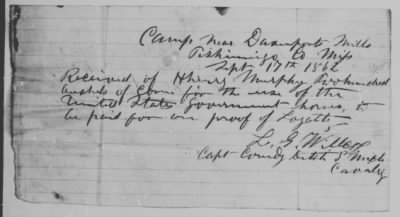 Camp Near Davenport Mills
Tishimingo Co Miss
Sept 17th 1862
Received of Henry Murphy Two hundred
bushels of Corn for the use of the
United States government horses, to
be paid for on proof of Loyalty
L. G. Wilcox
Capt Comdg Detch 3 Mich
Cavalry